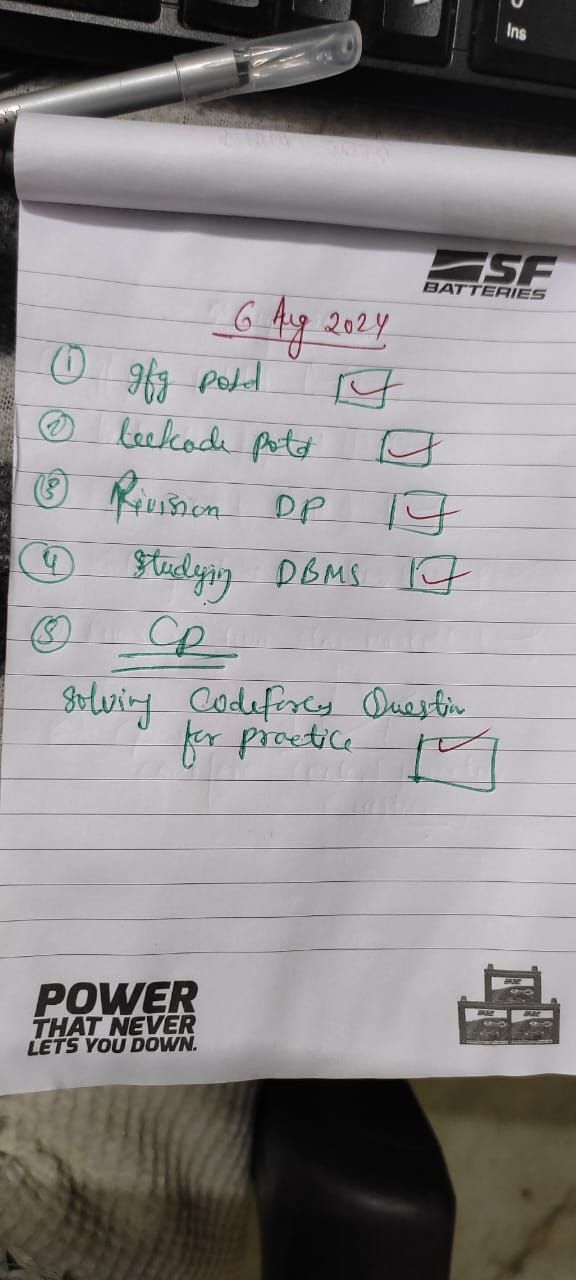 Ins
SF
BATTERIES
6 Aug 2024
① gfg potd
② leetcode potd
③ Rivision DP
④ Studying DBMS
⑤ CP
Solving Codeforces Question
for practice
POWER
THAT NEVER
LETS YOU DOWN.